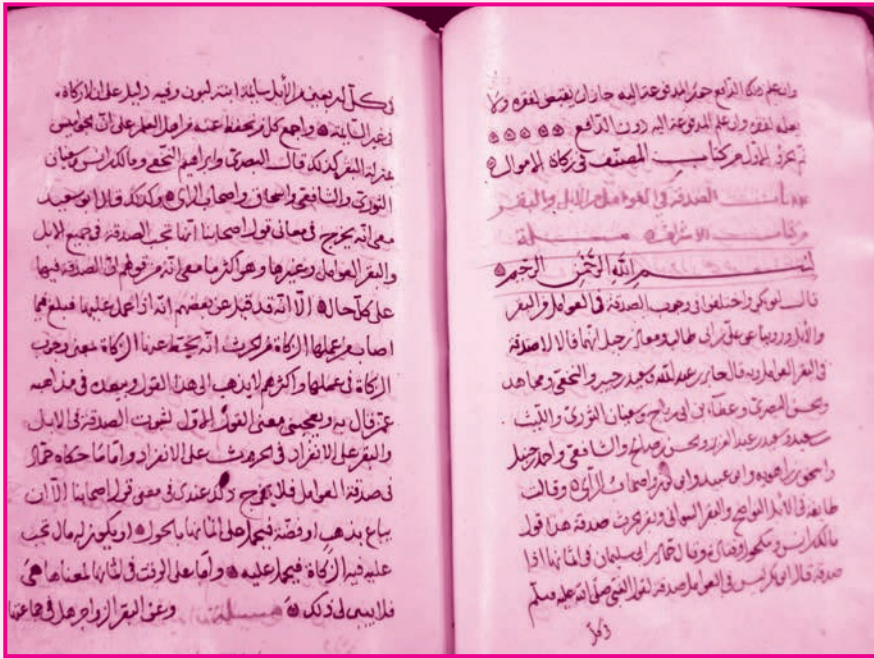 وان علم بذلك الدافع المدفوعة اليه جاز ان يقبض لفقره ولا
يعلمه لفقره وان علم المدفوعة اليه دون الدافع ه ه ه ه ه
تم الجزء الاول من كتاب المصنف في زكاة الاموال ه
باب الصدقة في العوامل من الابل والبقر
من كتاب الاشراف مسئلة
بسم الله الرحمن الرحيم ه
قال ابو بكر واختلفوا في وجوب الصدقة في العوامل من البقر
والابل وروينا عن علي بن ابي طالب ومعاذ بن جبل انهما قالا لا صدقة
في البقر العوامل وبه قال جابر بن عبد الله وسعيد بن جبير والنخعي ومجاهد
والحسن البصري وعطاء بن ابي رباح وسفيان الثوري والليث
بن سعد وسعيد بن عبد العزيز والحسن بن صالح والشافعي واحمد بن حنبل
واسحق بن راهويه وابو عبيد وابو ثور واصحاب الرأي ه وقالت
طائفة في الابل النواضح والبقر السواني وبقر الحرث صدقة هذا قول
مالك بن انس ومكحول وقتادة وقال حماد بن ابي سليمان في اثمانها اذا
صدقة قال ابو بكر ليس في العوامل صدقة لقول النبي صلى الله عليه وسلم
في كل
في كل اربعين من الابل سائمة ابنة لبون وفيه دليل على ان لا زكاة
في غير السائمة ه واجمع كل من يحفظ عنه من اهل العلم على ان الجواميس
بمنزلة البقر كذلك قال الحسن البصري وابراهيم النخعي ومالك بن انس وسفيان
الثوري والشافعي واسحاق واصحاب الراي ه وكذلك قال ابو سعيد
معي انه يخرج في معاني قول اصحابنا انها تجب الصدقة في جميع الابل
والبقر العوامل وغيرها وهو اكثر ما معي انه من قولهم ان الصدقة فيها
على كل حال ه الا انه قد قيل عن بعضهم انه اذا عمل عليها فبلغ فيما
اصاب من عملها الزكاة من الحرث انه يحتط عنها الزكاة بمعنى وجوب
الزكاة في عملها واكثرهم لا يذهب الى هذا القول وبعض في مذاهبه
ممن قال به ويعجبني معنى القول الاول لثبوت الصدقة في الابل
والبقر على الانفراد في الحرث على الانفراد واما ما حكاه حماد
في صدقة العوامل فلا يخرج ذلك عندي في معنى قول اصحابنا الا ان
يباع بذهب او فضة فيحمل على اثمانها بالحول ه او يكون له مال تجب
عليه فيه الزكاة فيحمل عليه ه واما على الوقت في اثمانها لمعناها هي
فلا يبين لي ذلك ه مسئلة وعن البقر الزواجر هل في جماعتها